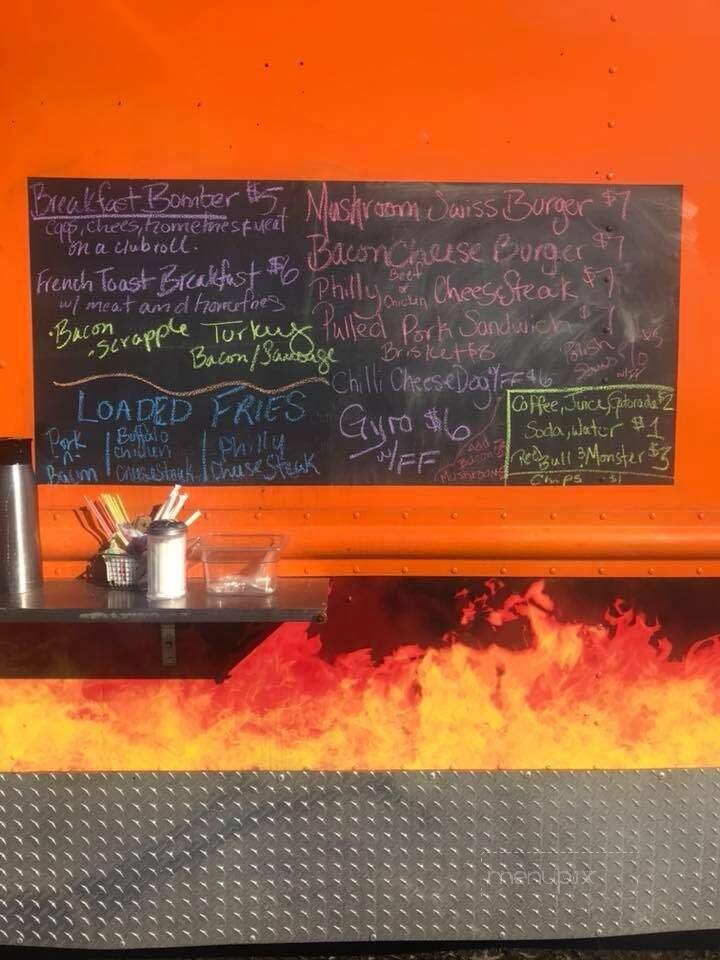 Breakfast Bomber $5
eggs, chees, homefries & meat
on a club roll.
French Toast Breakfast $6
w/ meat and homefries
·Bacon
·Scrapple
Turkey
Bacon/Sausage
LOADED FRIES
Pork
Bacon
Buffalo
chicken
cheesesteak
Philly
Cheese Steak
Mushroom Swiss Burger $7
Bacon Cheese Burger $7
Philly Beef or Chicken CheeseSteak $7
Pulled Pork Sandwich $7
Brisket $8
Polish
Saus
w/FF
Chilli Cheese Dog w/FF $6
Gyro $6
w/FF
add
Bacon
Mushrooms
Coffee, Juice, Gatorade $2
Soda, Water $1
Red Bull & Monster $3
Chips $1
menupix